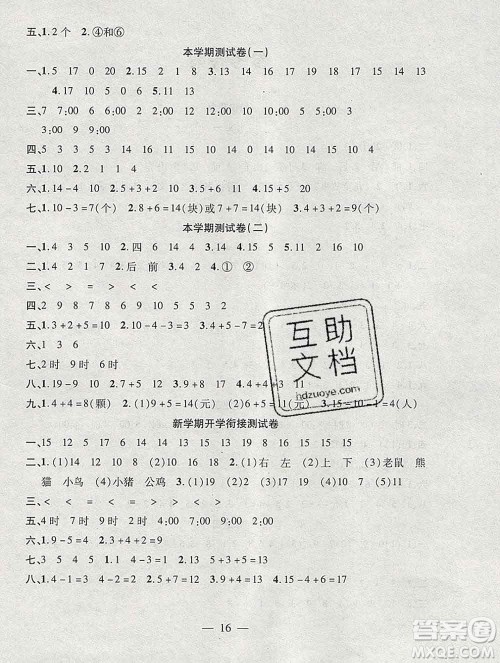 五、1.2个 2.④和⑥
本学期测试卷(一)
一、1.5 17 0 20 2.15 2 1 8 3.13 15 4.18 19
10 17 5.0 17 6.5 11 7.0 6 8.13
三、7 7;00 2 2;00 8 8;00 10 10;00 9 11 3
3;00 9 9;00
四、5 3 5 5 3 14 14 16 11 10 15 15 7 14
五、1.10 2.2 1 1
六、1.14-4 10 2.5+3+2 10 3.10-6 4 4.15+2 17
七、1.10-3=7(个) 2.6+8=14(块)或7+7=14(块) 3.4+3+2=9(个)
本学期测试卷(二)
一、1.4 3 5 10 2.四 6 14 4 3.15 5 17 4.16 13 10
二、1.4 2 1 7 2.后 前 3.2 4.① ②
三、< > = > < >
四、2 9 8 5 6 3 7 3 2
五、1.3+2=5 2.1+2+3=6 3.9-1-4=4
六、1 3 6
七、2时 9时 6时
八、1.19-9 10 2.4+5 9 3.20-10 10
九、1.4+4=8(颗) 2.(1)9+5=14(元) (2)6+9=15(元) 3.15-10-1=4(人)
新学期开学衔接测试卷
一、15 12 5 13 15 11 4 14 19
二、1.(1)14 12 8 10 (2)6 7 (3)6 9 2.(1)右 左 (2)上 下 (3)老鼠 熊
猫 小鸟 (4)小猪 公鸡 3.(1)3 2 (2)3 4
三、< < = = > < > < >
五、4时 7时 9时 2时
七、3 5 4 1 1 4 3 5 8+5=13
八、1.4-1=3 2.8+2=10 3.9+4=13 4.4-3=1 5.7+6=13
— 16 —
互助
文档
hdzuoye.com
答案圈
MXQE.COM